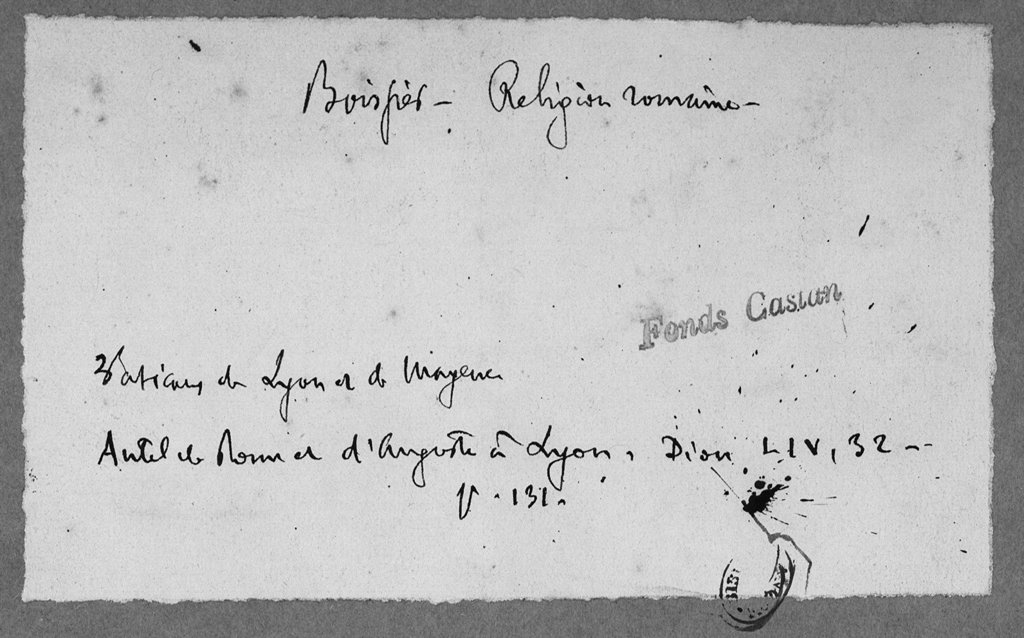 Boissier — Religion romaine —
Fonds Castan
Vaticans de Lyon et de Mayence
Autel de Rome et d'Auguste à Lyon, Dion LIV, 32 —
p. 131.
BIB